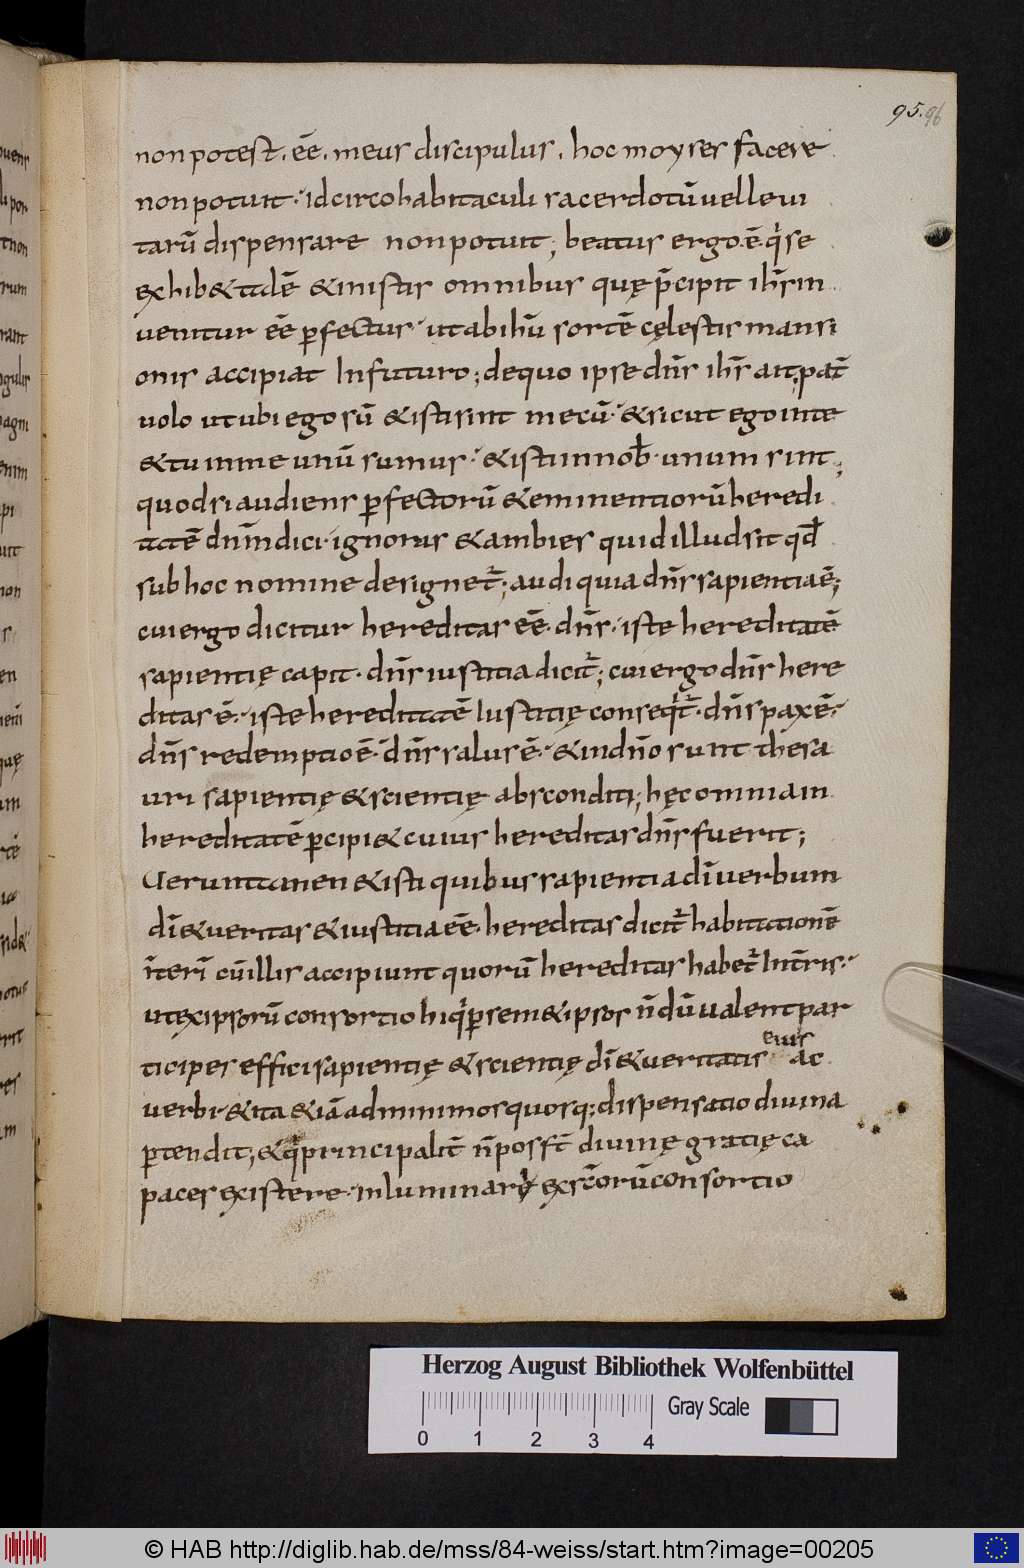 95. 96
non potest. eē. meus discipulus. hoc moyses facere
non potuit. idcirco habitaculi sacerdotū vel levi
tarū dispensare non potuit; beatus ergo. ē. qi se
exhib& talē & inistis omnibus quę p̄cipit ihs in
venitur eē pfectus. ut ab ihū sortē cęlestis mansi
onis accipiat In futuro; de quo ipse dns ihs ait; pat
uolo ut ubi ego sū & isti sint mecū. & sicut ego in te
& tu in me unū sumus. & isti in nob. unum sint;
quod si audiens pfectorū & eminentiorū heredi
tatē dnm dici. ignoras & ambies quid illud sit qd
sub hoc nomine designet; audi quia dns sapientia ē;
cui ergo dicitur hereditas eē. dns. iste hereditatē
sapientię capit. dns iustitia dicit; cui ergo dns here
ditas ē. iste hereditatē Iustitię conseqt. dns pax ē.
dns redemptio ē. dns salus ē. & in dno sunt thesa
uri sapientię & scientię absconditi; hęc omnia in
hereditatē pcipi& cuius hereditas dns fuerit;
Ueruntamen & isti quibus sapientia dī verbum
dī & veritas & iustitia eē. hereditas dicit habitationē
interī cū illis accipiunt quorū hereditas habet In tris.
ut ex ipsorū consortio hi qi p sem& ipsos n̄dū valent par
ticipes effici sapientię & scientię dī & veritatis eius ac
verbi. & ita & iā ad minimos quosq; dispensatio divina
ptendit; & qi principalit n̄ posst divinę gratię ca
paces existere. in luminary ex scorū consortio
Herzog August Bibliothek Wolfenbüttel
Gray Scale
0 1 2 3 4
© HAB http://diglib.hab.de/mss/84-weiss/start.htm?image=00205